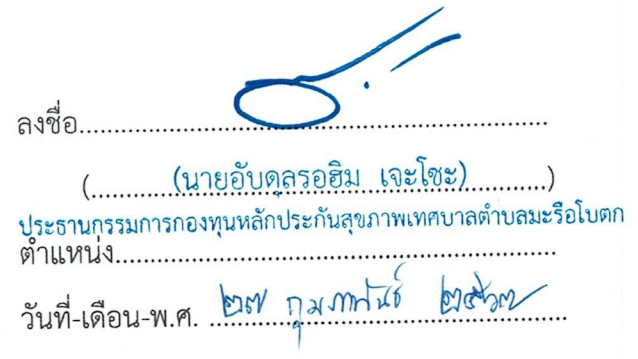 ลงชื่อ
(นายอับดุลรอฮิม เจะโซะ)
ประธานกรรมการกองทุนหลักประกันสุขภาพเทศบาลตำบลมะรือโบตก
ตำแหน่ง
วันที่-เดือน-พ.ศ. ๒๗ กุมภาพันธ์ ๒๕๖๗